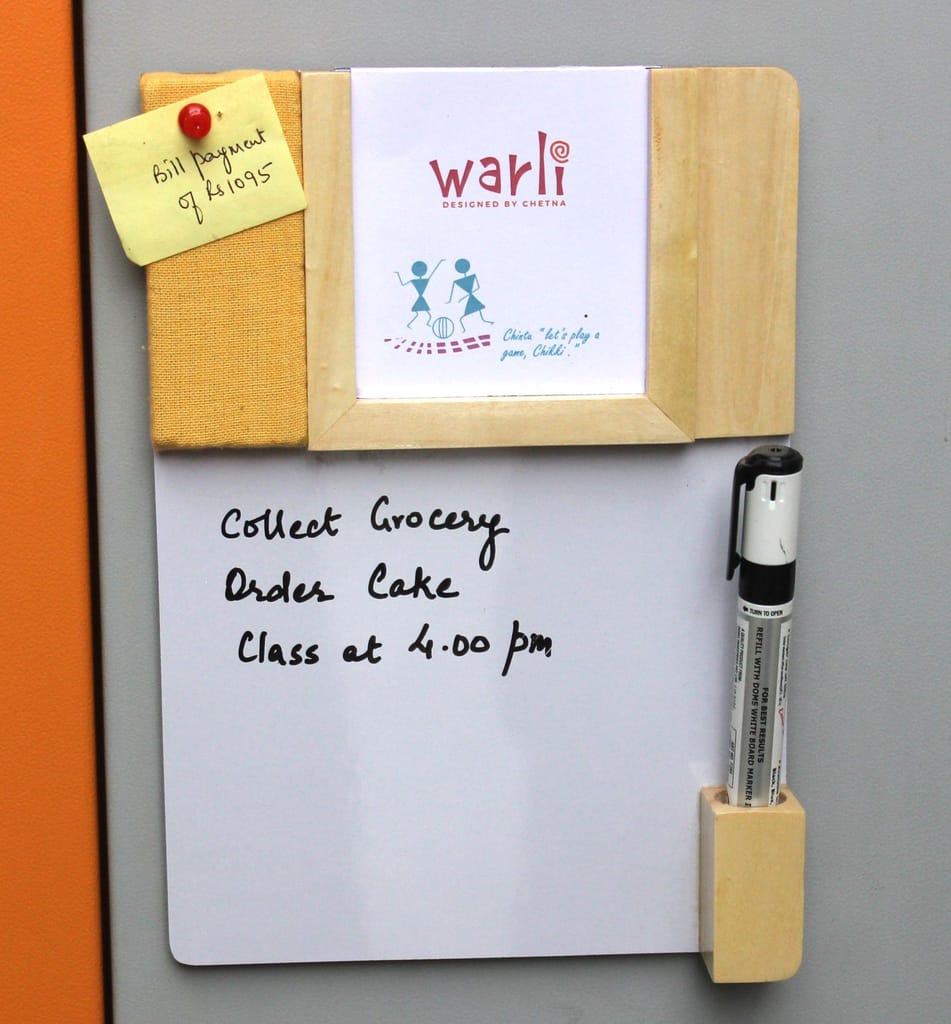 Bill payment
of Rs 1095
warli
DESIGNED BY CHETNA
Chintu "let's play a
game, Chikki."
Collect Grocery
Order Cake
Class at 4.00 pm
TURN TO OPEN
FOR BEST RESULTS
REFILL WITH DOMS WHITE BOARD MARKER